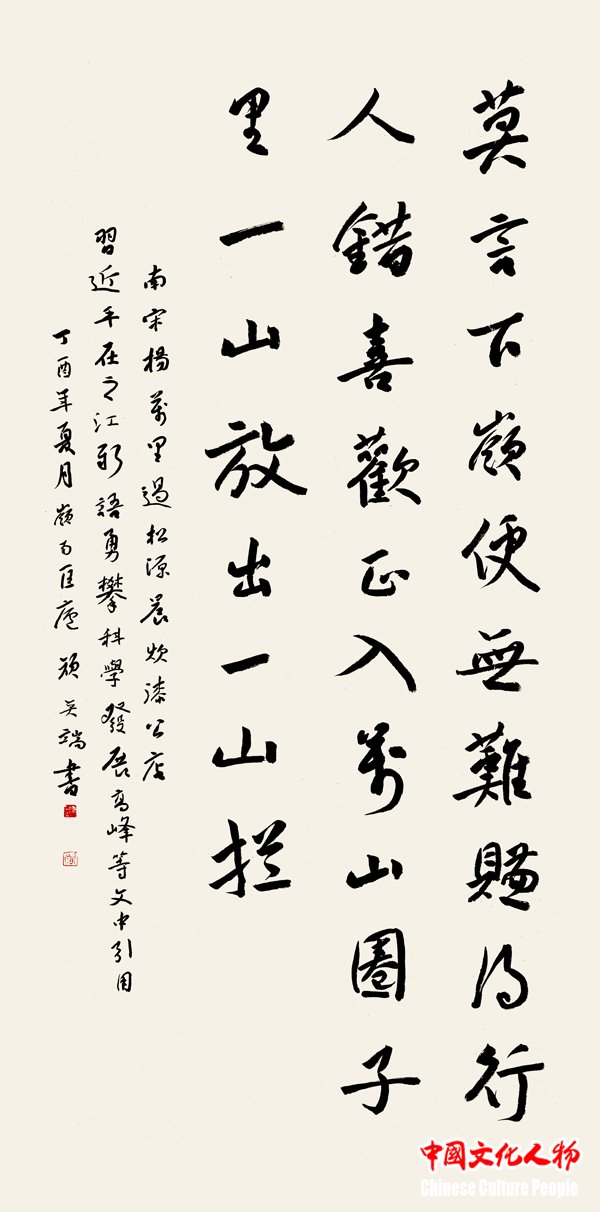 莫言下嶺便無難賺得行
人錯喜歡正入萬山圈子
里一山放出一山拦
南宋楊萬里過松源晨炊漆公店
習近平在之江新語勇攀科學發展高峰等文中引用
丁酉年夏月嶺南廬端書
中國文化人物
Chinese Culture People